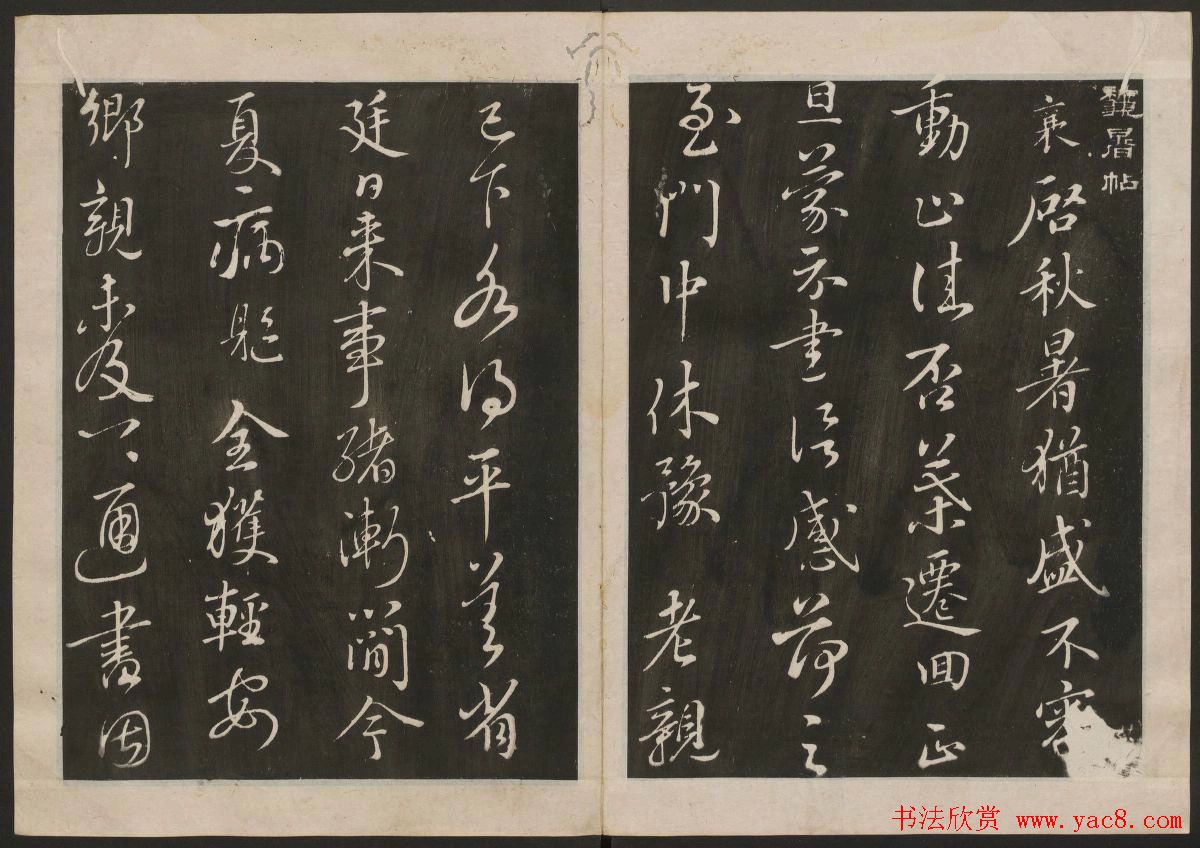 龝暑帖
襄啓秋暑猶盛不審
動止佳否某遷回正
旦蒙示書信感荷之
至門中休豫老親
已下各得平善省
廷日来事緒漸簡今
夏病軀全獲輕安
鄉親未及一一通書因
书法欣赏 www.yac8.com